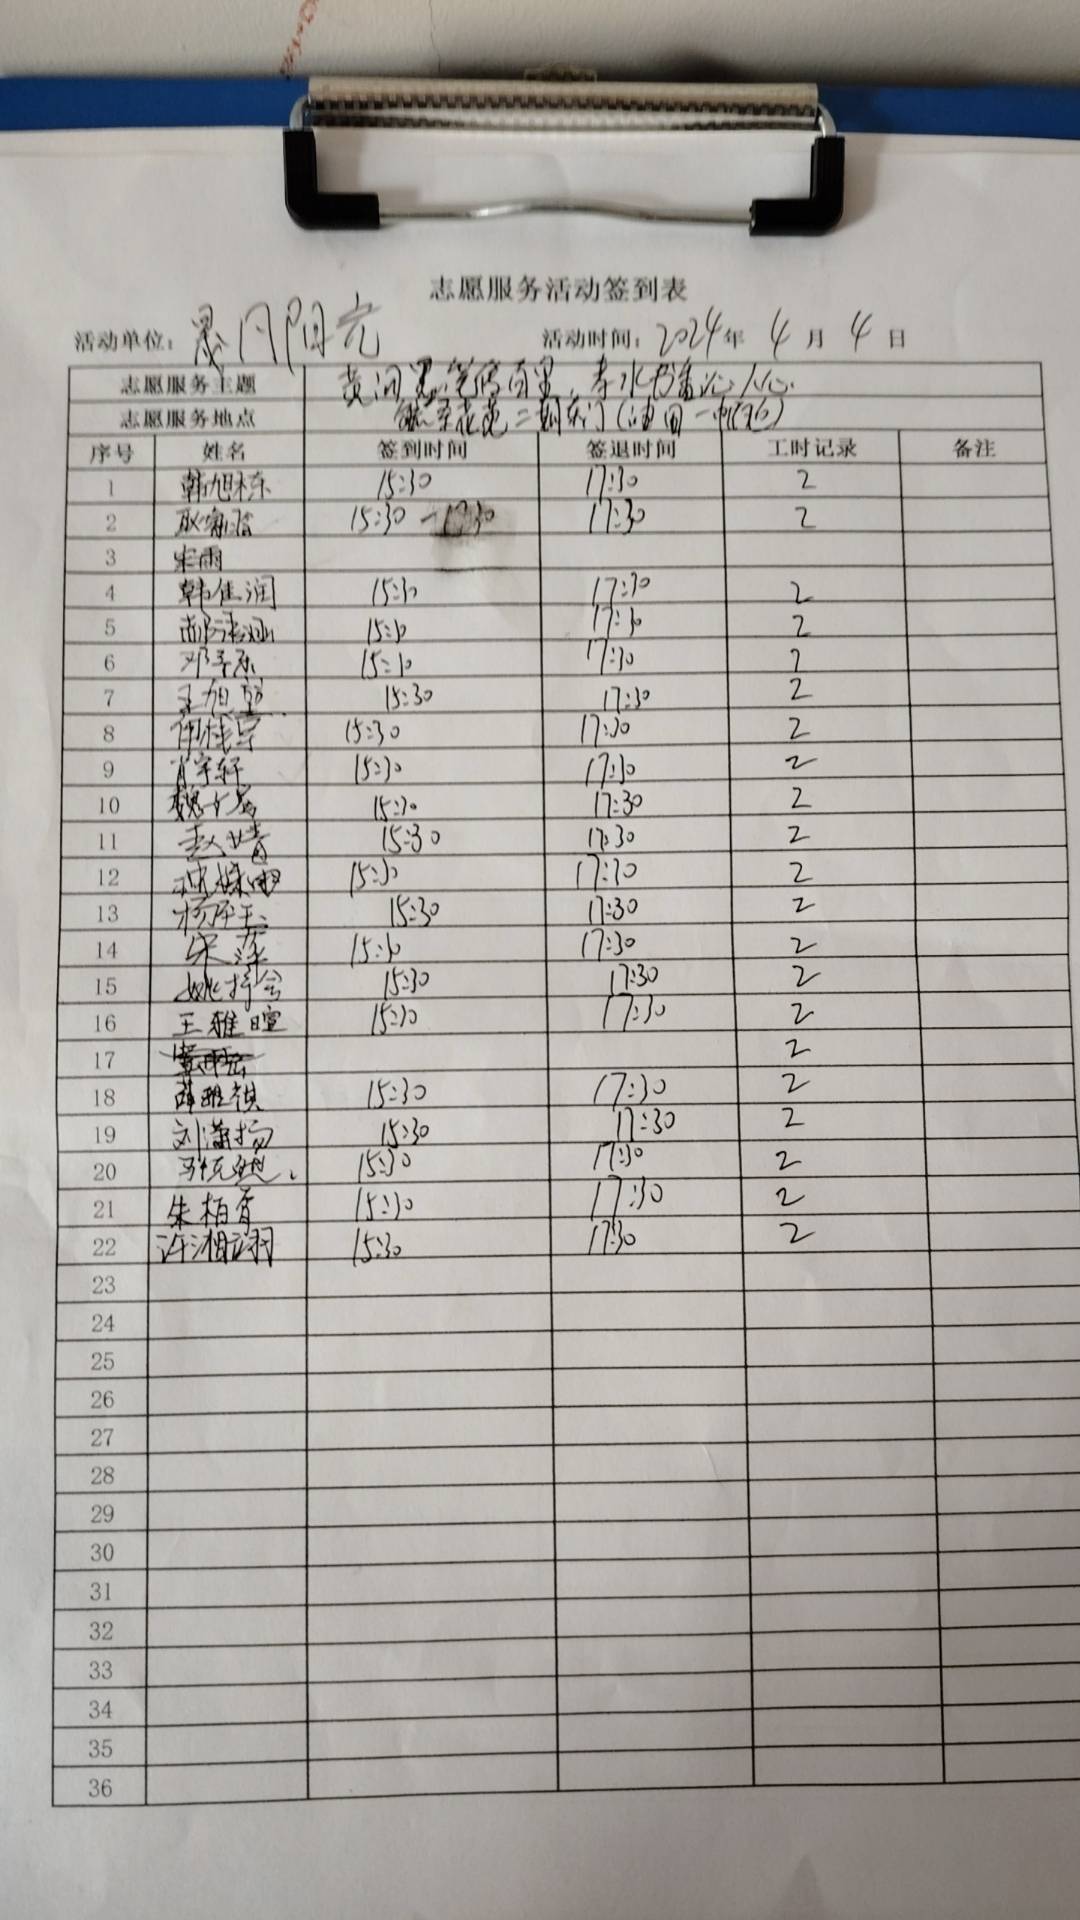 志愿服务活动签到表
活动单位: 阳光 活动时间: 2024年 4月 4日
志愿服务主题 黄河
志愿服务地点 花苑二期东门
序号 姓名 签到时间 签退时间 工时记录 备注
1 韩旭栋 15:30 17:30 2
2 15:30 - 17:30 17:30 2
3 宋雨
4 韩佳润 15:30 17:30 2
5 15:30 17:30 2
6 邓子 15:30 17:30 2
7 王旭 15:30 17:30 2
8 15:30 17:30 2
9 肖宇轩 15:30 17:30 2
10 魏 15:30 17:30 2
11 赵婧 15:30 17:30 2
12 15:30 17:30 2
13 杨 15:30 17:30 2
14 宋 15:30 17:30 2
15 姚 15:30 17:30 2
16 王雅暄 15:30 17:30 2
17 2
18 薛雅祺 15:30 17:30 2
19 刘潇扬 15:30 17:30 2
20 15:30 17:30 2
21 朱柏 15:30 17:30 2
22 许湘 15:30 17:30 2
23
24
25
26
27
28
29
30
31
32
33
34
35
36